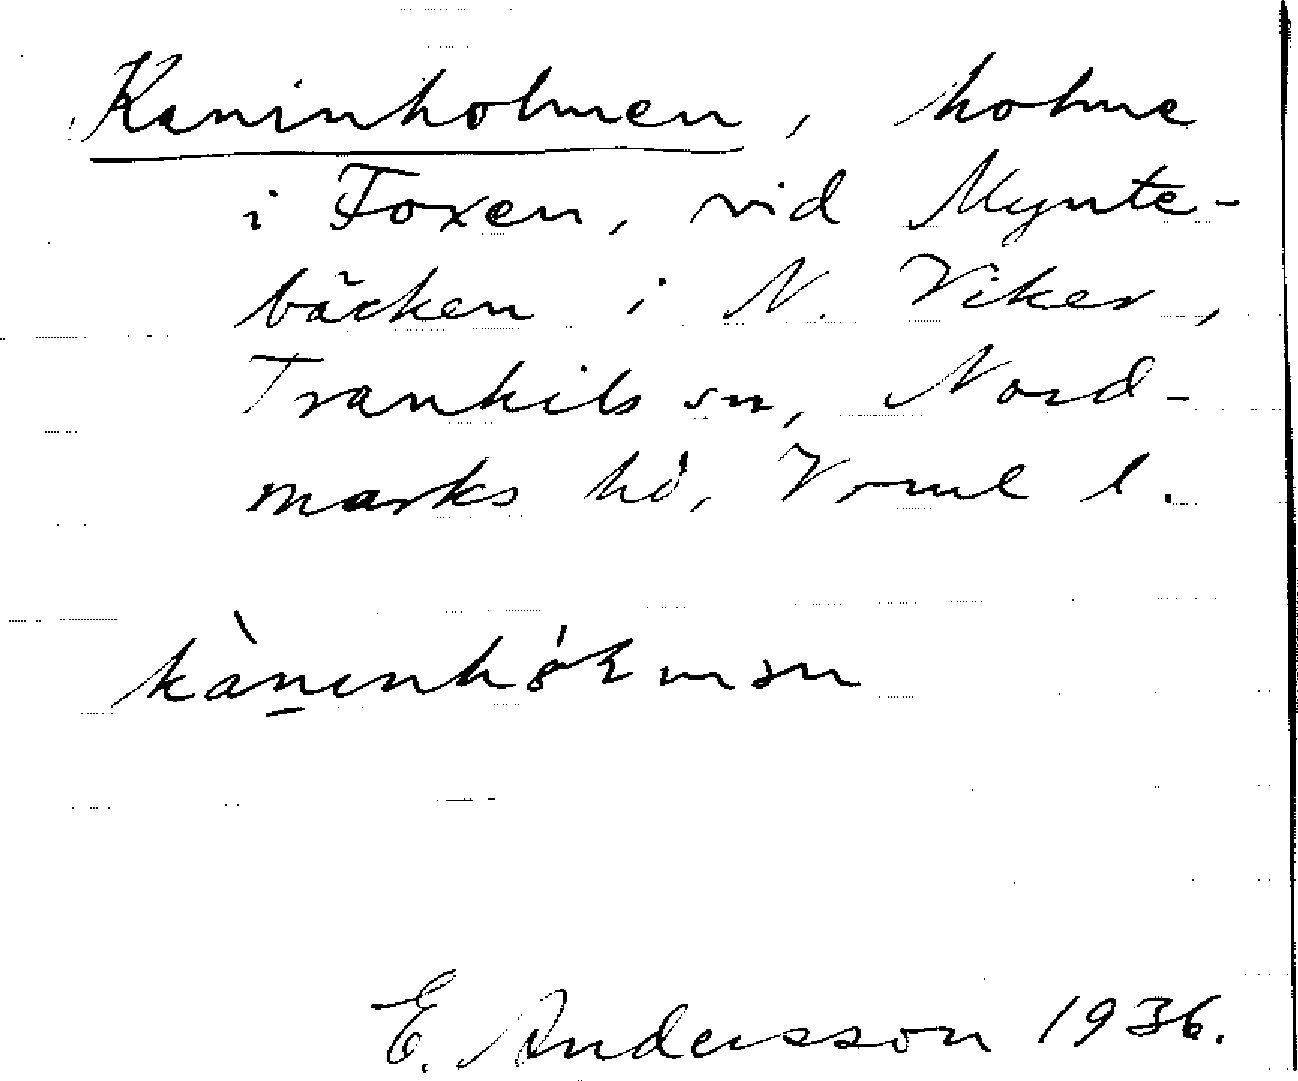 Kaninholmen, holme
i Foxen, vid Mynte-
bäcken i N. Viker,
Trankils sn, Nord-
marks hd, Vrml l.
E. Andersson 1936.